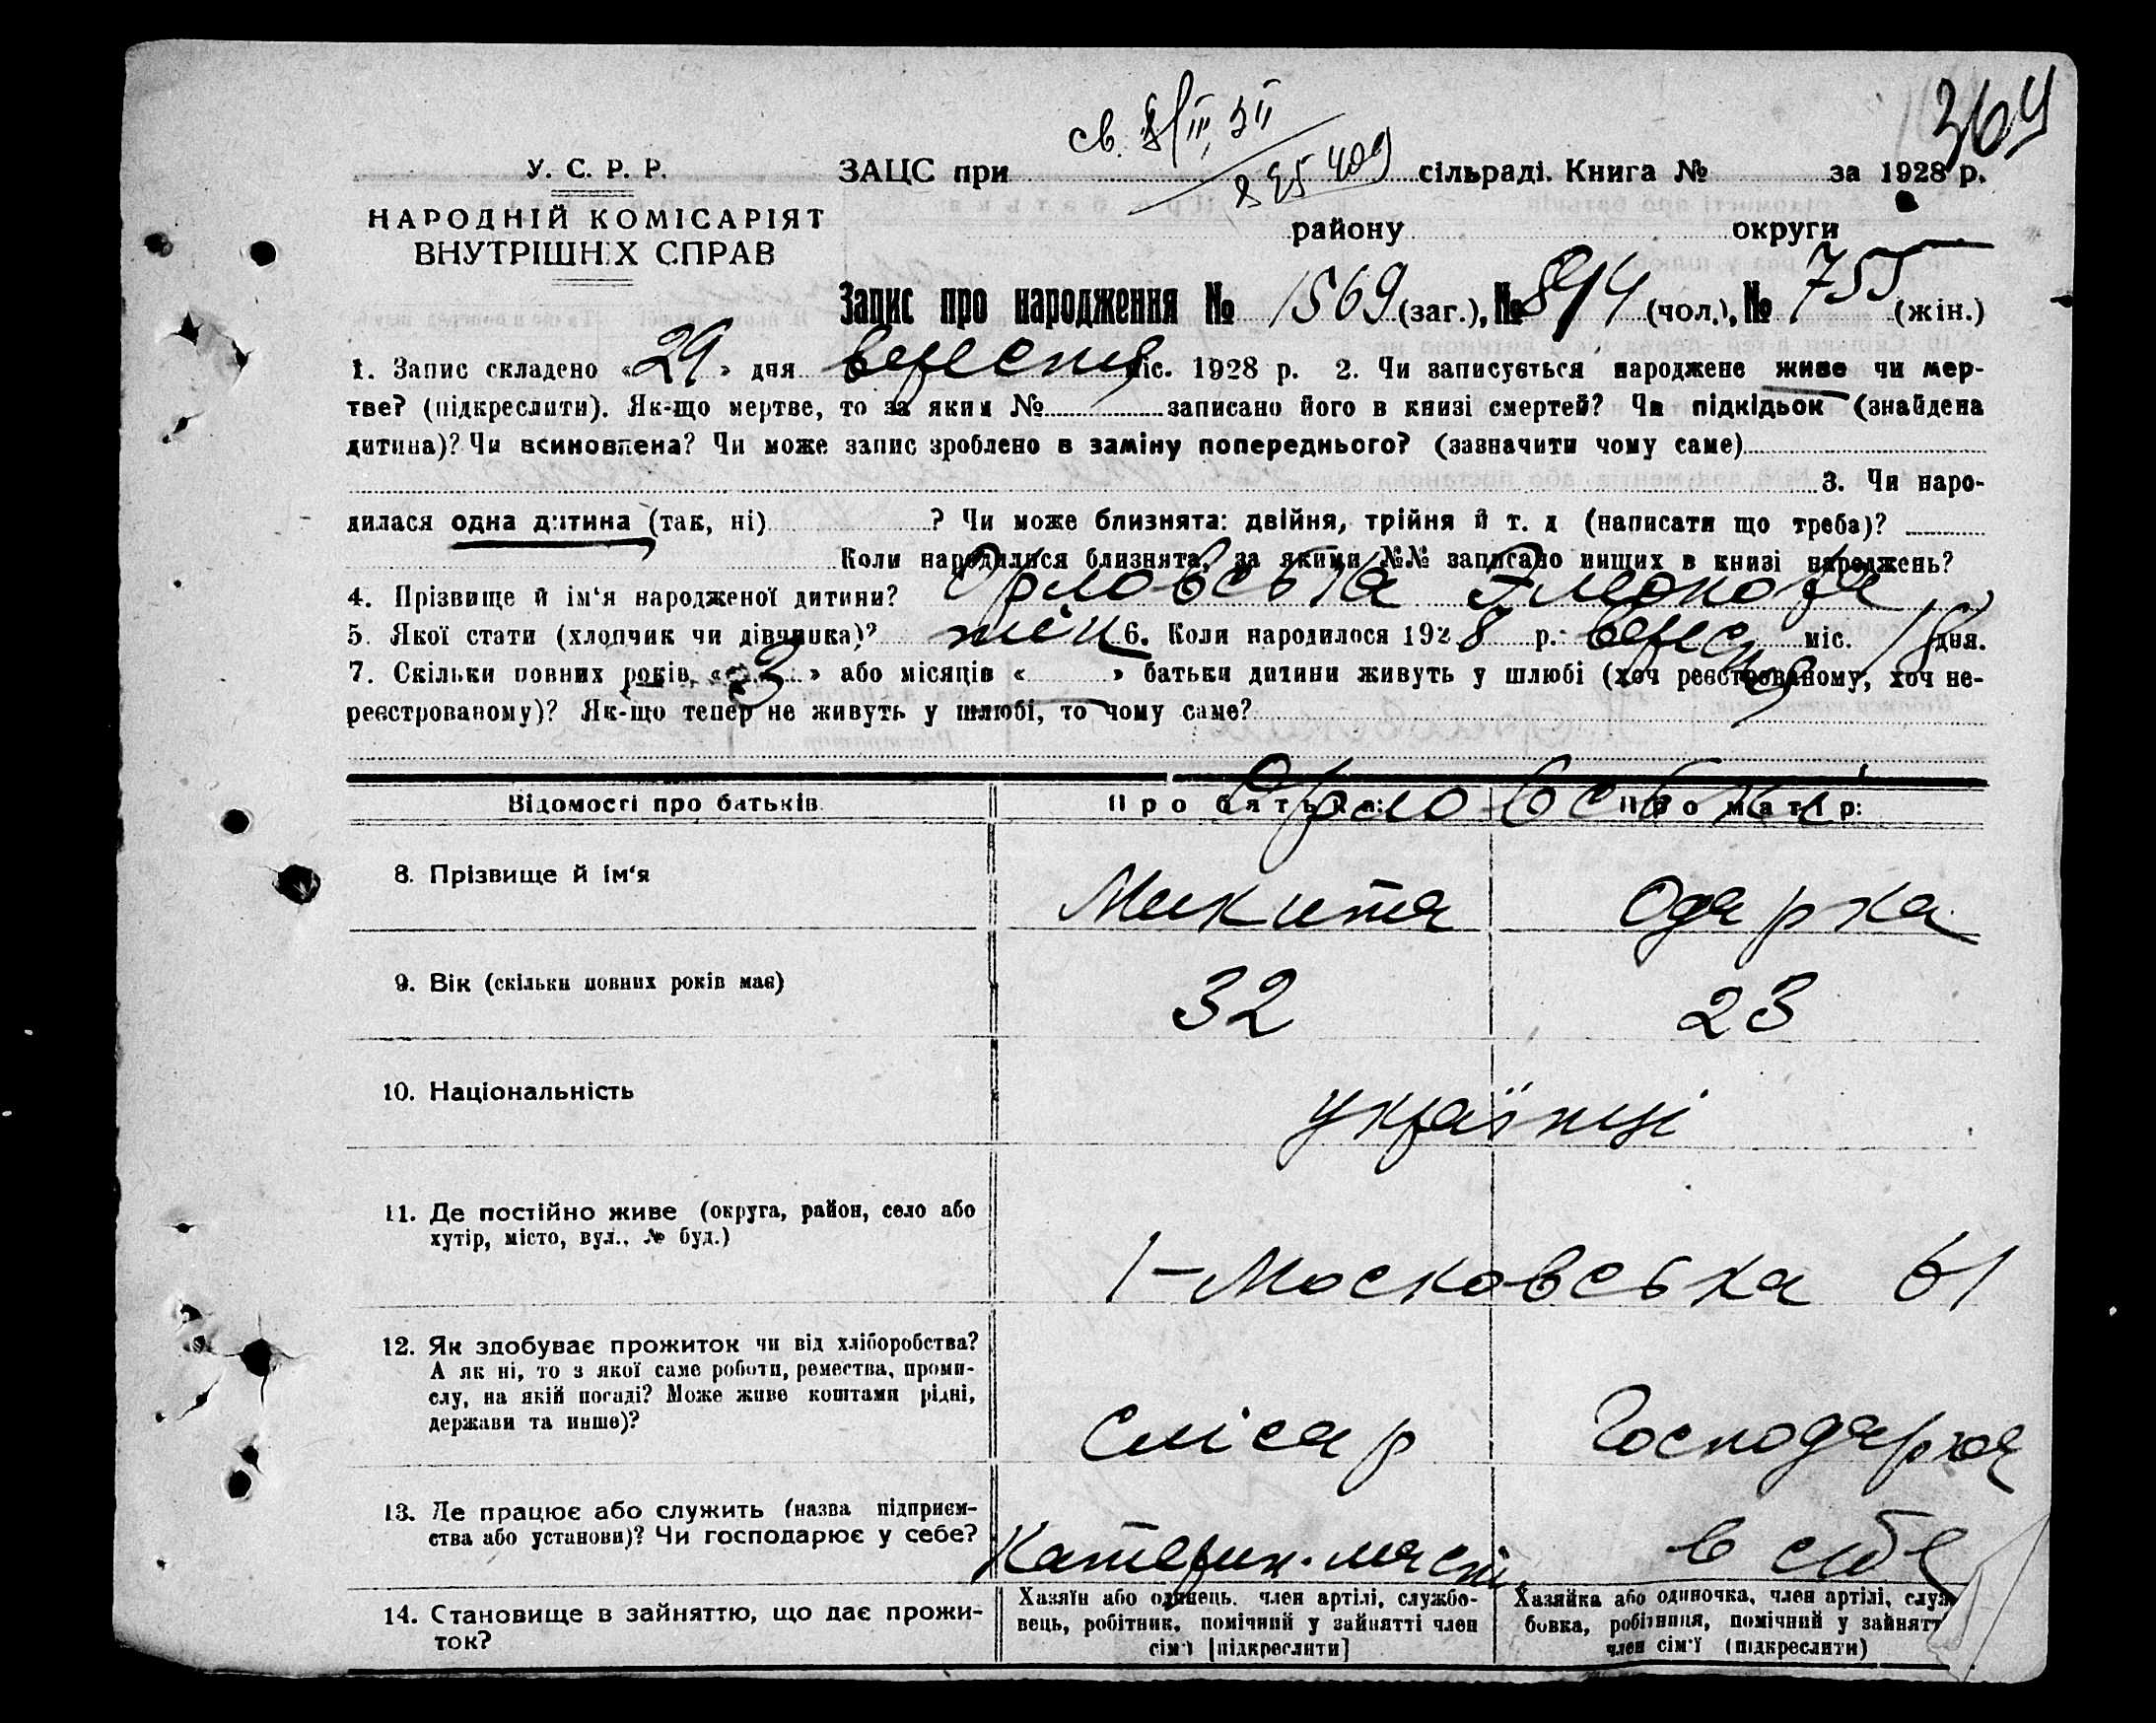 364
св.
У. С. Р. Р.
ЗАЦС при сільраді. Книга № за 1928 р.
НАРОДНІЙ КОМІСАРІЯТ
ВНУТРІШНІХ СПРАВ
району округи
Запис про народження № 1569 (заг.), № 814 (чол.), № 755 (жін.)
1. Запис складено « 29 » дня вересня міс. 1928 р. 2. Чи записується народжене живе чи мер-
тве? (підкреслити). Як-що мертве, то за яким № записано його в книзі смертей? Чи підкідьок (знайдена
дитина)? Чи всиновлена? Чи може запис зроблено в заміну попереднього? (зазначити чому саме)
3. Чи наро-
дилася одна дитина (так, ні) ? Чи може близнята: двійня, трійня й т. д (написати що треба)?
Коли народилися близнята, за якими №№ записано инших в книзі народжень?
4. Прізвище й ім‘я народженої дитини? Орловська
5. Якої стати (хлопчик чи дівчинка)? жін 6. Коли народилося 1928 р. вересня міс. 18 дня.
7. Скільки повних років, « 3 » або місяців « » батьки дитини живуть у шлюбі (хоч реєстрованому, хоч не-
реєстрованому)? Як-що тепер не живуть у шлюбі, то чому саме?
Відомості про батьків Про батька: Про матір:
Орловські
8. Прізвище й ім‘я Микита Одарка
9. Вік (скільки повних років має) 32 23
10. Національність українці
11. Де постійно живе (округа, район, село або
хутір, місто, вул., № буд.)
1-Московська 61
12. Як здобуває прожиток чи від хліборобства?
А як ні, то з якої саме роботи, ремества, проми-
слу, на якій посаді? Може живе коштами рідні,
держави та инше)?
Слісар Господарює
13. Де працює або служить (назва підприєм-
ства або установи)? Чи господарює у себе?
Катерин. в себе
14. Становище в зайняттю, що дає прожи-
ток?
Хазяїн або одинець, член артілі, службо-
вець, робітник, помічний у зайнятті член
сім‘ї [підкреслити]
Хазяйка або одиночка, член артілі, служ
бовка, робітниця, помічний у зайнятт
член сім‘ї (підкреслити)